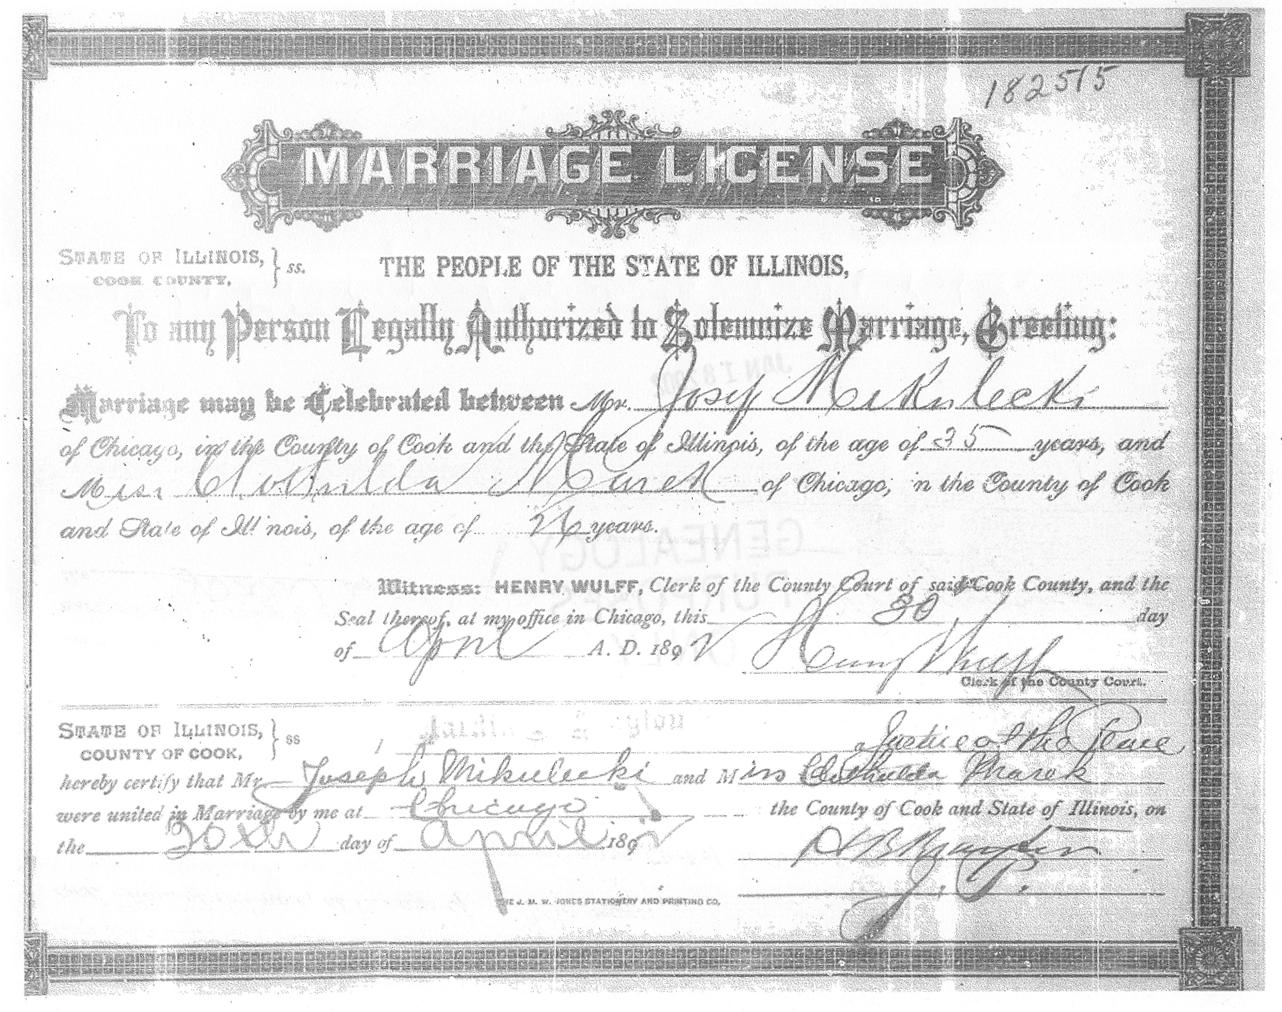 182515
MARRIAGE LICENSE
STATE OF ILLINOIS, COOK COUNTY, } ss.
THE PEOPLE OF THE STATE OF ILLINOIS,
To any Person Legally Authorized to Solemnize Marriage, Greeting:
Marriage may be Celebrated between Mr. Josef Mikulecki
of Chicago, in the County of Cook and the State of Illinois, of the age of 35 years, and
Miss Clothulda Marek of Chicago, in the County of Cook
and State of Illinois, of the age of 26 years.
Witness: HENRY WULFF, Clerk of the County Court of said Cook County, and the
Seal thereof, at my office in Chicago, this 30 day
of April A. D. 1892 Henry Wulff
Clerk of the County Court.
STATE OF ILLINOIS, COUNTY OF COOK, } ss
I, Justice of the Peace
hereby certify that Mr. Joseph Mikulecki and Miss Clothulda Marek
were united in Marriage by me at Chicago the County of Cook and State of Illinois, on
the 30th day of April 1892
J. P.
THE J. M. W. JONES STATIONERY AND PRINTING CO.
JAN 18 2002
GENEALOGY
PURPOSES
ONLY